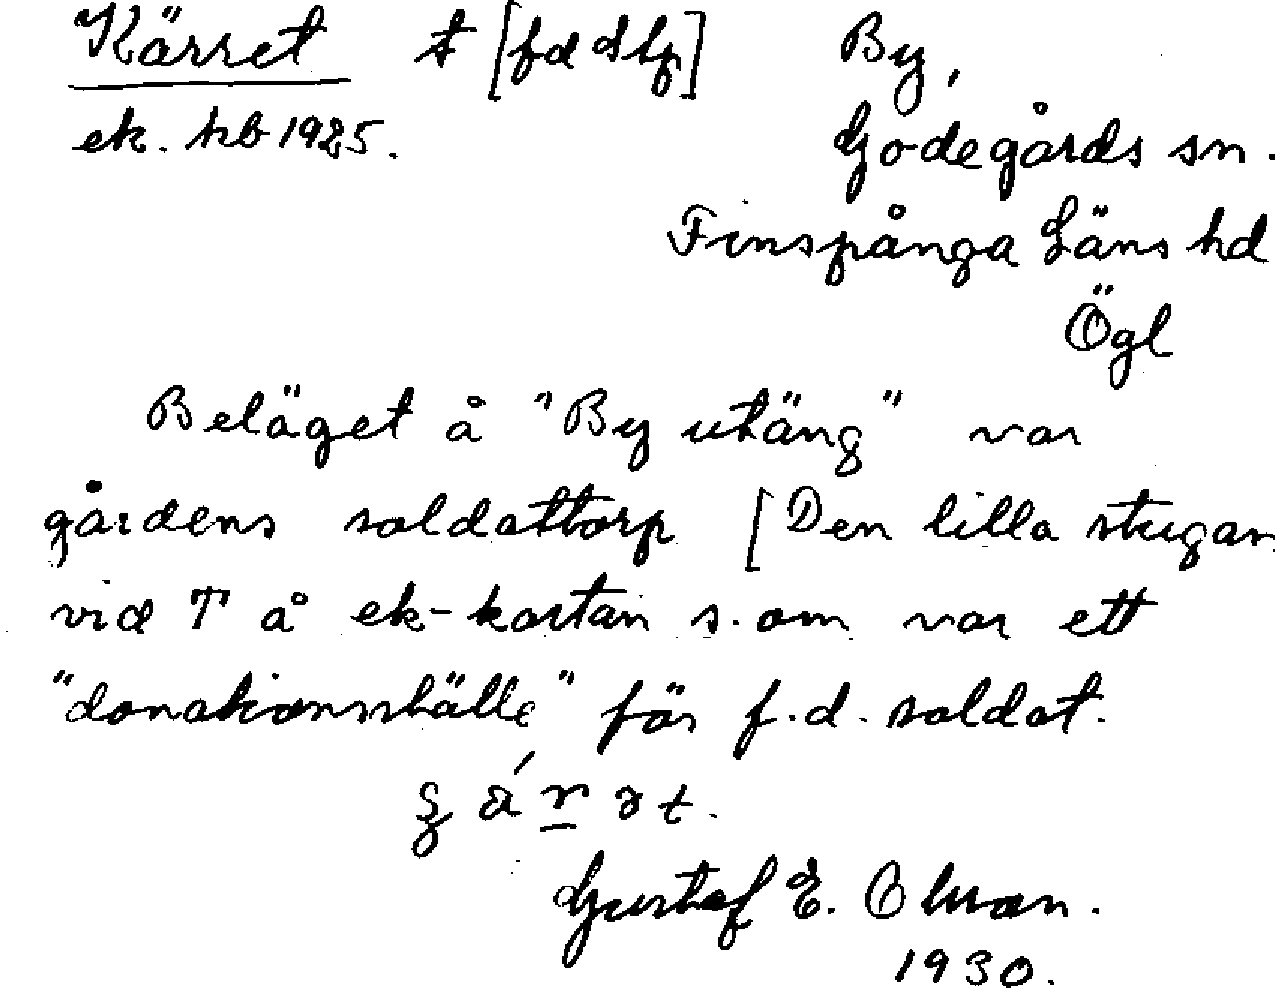 Kärret t [fd slp] By,
ek. hb 1925. Godegårds sn.
Finspånga Läns hd
Ögl
Beläget å "By utäng" var
gårdens soldattorp [Den lilla stugan
vid T å ek-kartan s.om var ett
"donationsställe" för f.d. soldat.
1930.